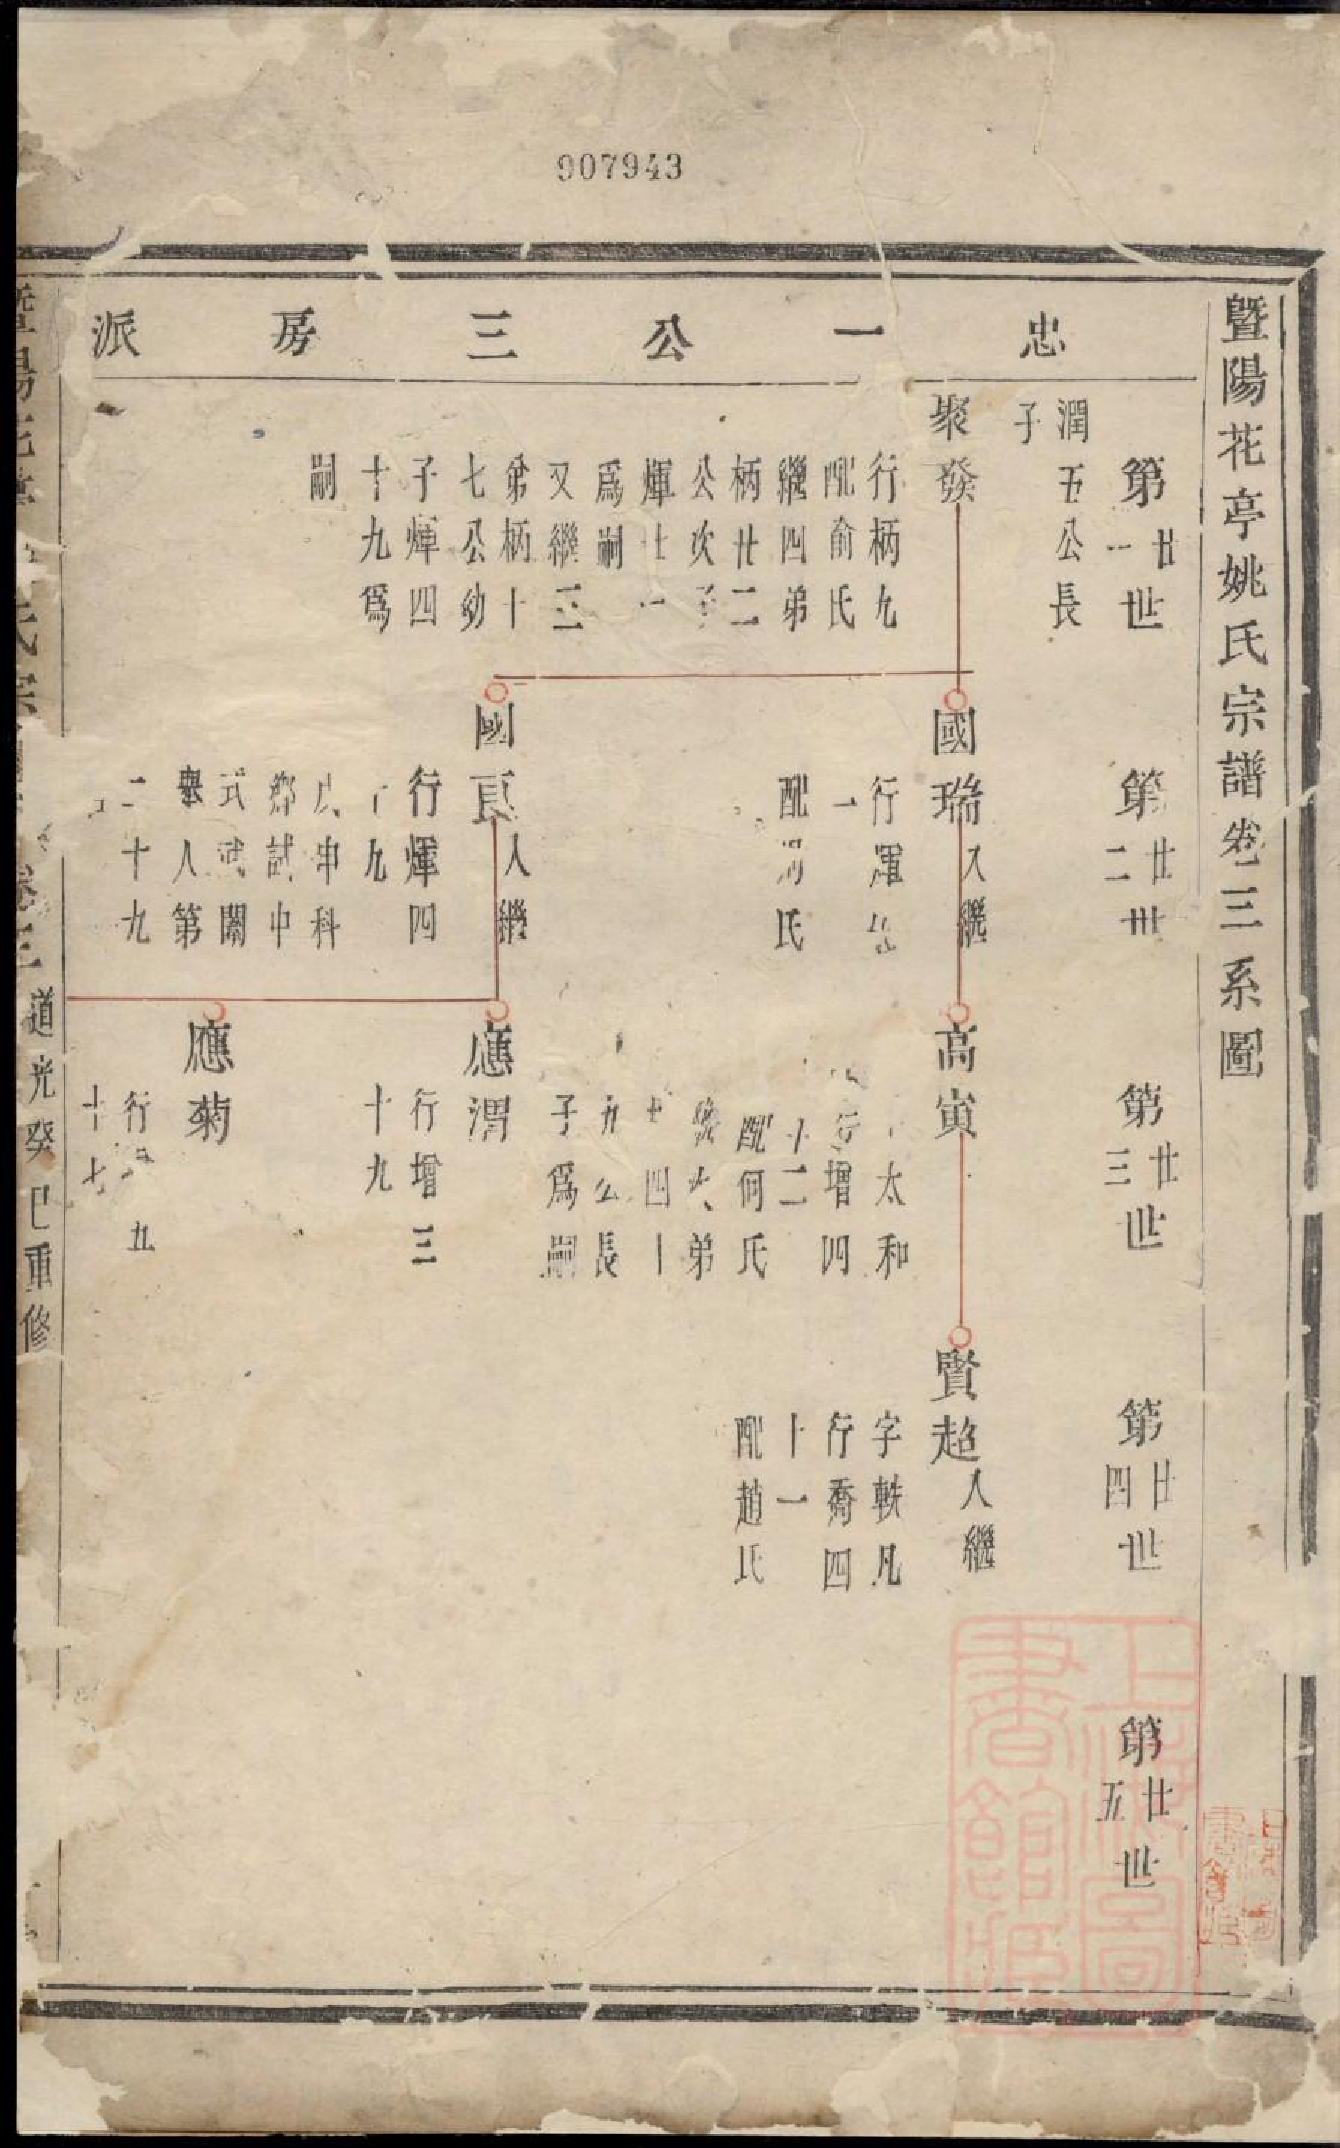 907943
暨陽花亭姚氏宗譜卷三系圖
忠一公三房派
第廿一世
潤五公長
子
聚發
行柄九
配俞氏
繼四弟
柄廿二
公次子
煇七一
爲嗣
又繼三
弟柄十
七公幼
子煇四
十九爲
嗣
第廿二世
國瑞入繼
行煇七
一
配馮氏
國良入繼
行煇四
十九
戊申科
鄉試中
式武闈
舉人第
二十九
第廿三世
高寅
太和
行增四
十二
配何氏
繼六弟
四十
五公長
子爲嗣
應渭
行增三
十九
應菊
行增五
十七
第廿四世
賢超入繼
字軼凡
行喬四
十一
配趙氏
第廿五世
卷三
道光癸巳重修
上海圖書館藏